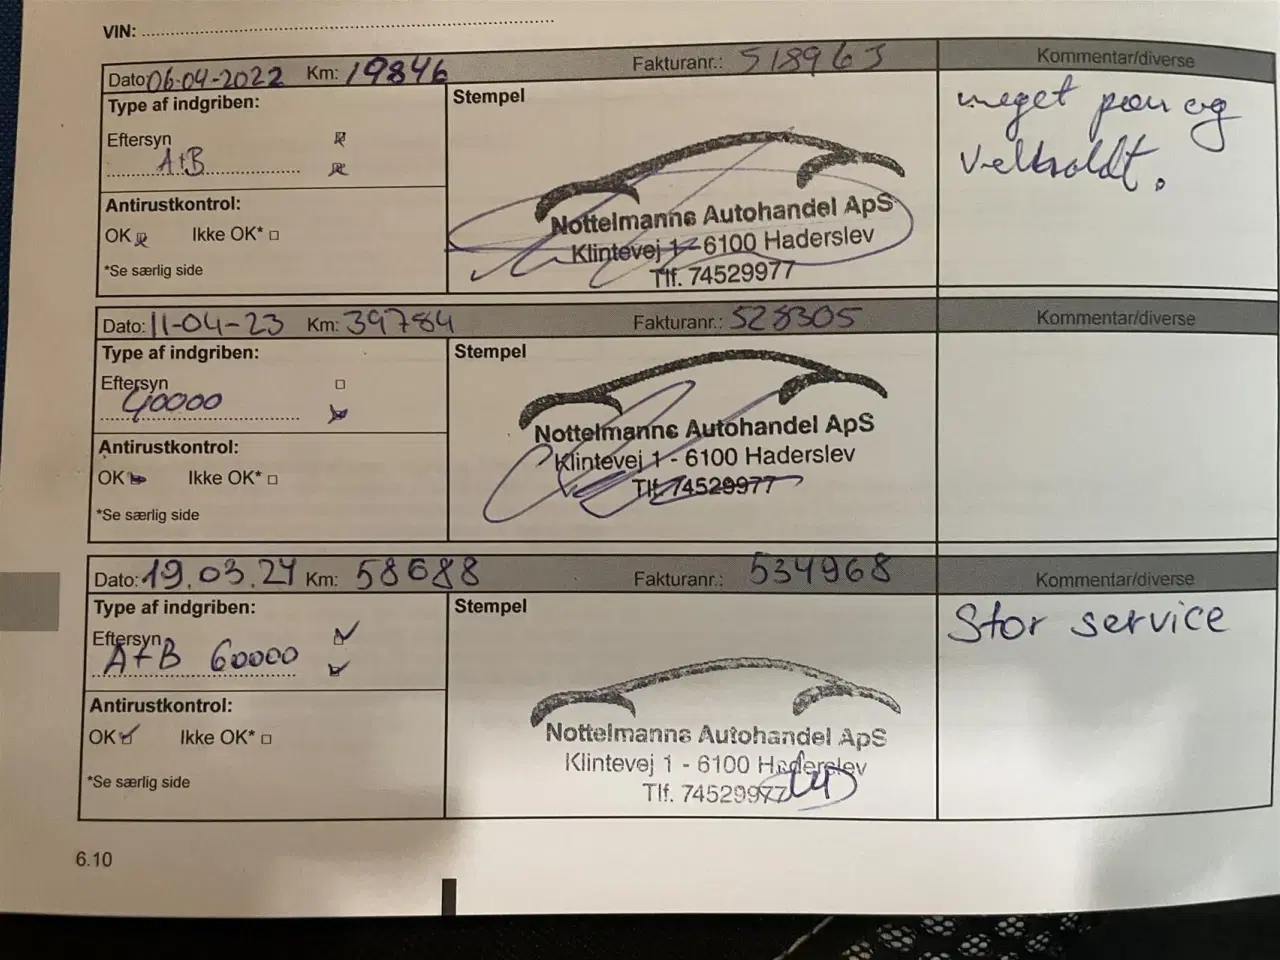 VIN:
Dato: 06-04-2022 Km: 19846 Fakturanr.: 518963 Kommentar/diverse
Type af indgriben:
Stempel
meget pæn og
velholdt.
Eftersyn
A+B
Antirustkontrol:
OK Ikke OK*
*Se særlig side
Nottelmanns Autohandel ApS
Klintevej 1 - 6100 Haderslev
Tlf. 74529977
Dato: 11-04-23 Km: 39784 Fakturanr.: 528305 Kommentar/diverse
Type af indgriben:
Stempel
Eftersyn
40000
Antirustkontrol:
OK Ikke OK*
*Se særlig side
Nottelmanns Autohandel ApS
Klintevej 1 - 6100 Haderslev
Tlf. 74529977
Dato: 19.03.24 Km: 58688 Fakturanr.: 534968 Kommentar/diverse
Type af indgriben:
Stempel
Stor service
Eftersyn
A+B 60000
Antirustkontrol:
OK Ikke OK*
*Se særlig side
Nottelmanns Autohandel ApS
Klintevej 1 - 6100 Haderslev
Tlf. 74529977
6.10